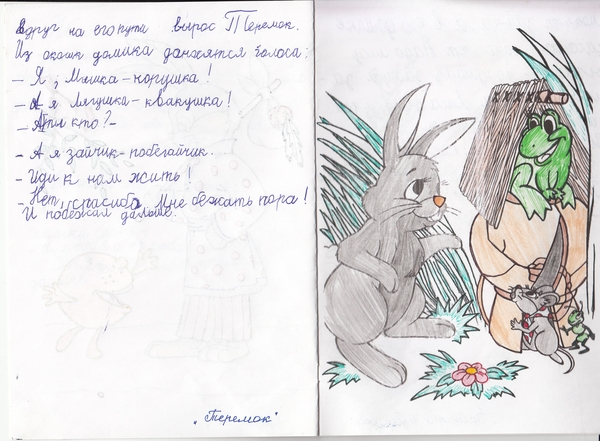 Вдруг на его пути вырос Теремок.
Из окошк домика доносятся голоса:
- Я, Мышка-норушка!
- А я Лягушка-квакушка!
- А ты кто?-
- А я зайчик-побегайчик.
- Иди к нам жить!
- Нет, спасибо, мне бежать пора!
И побежал дальше.
"Теремок"